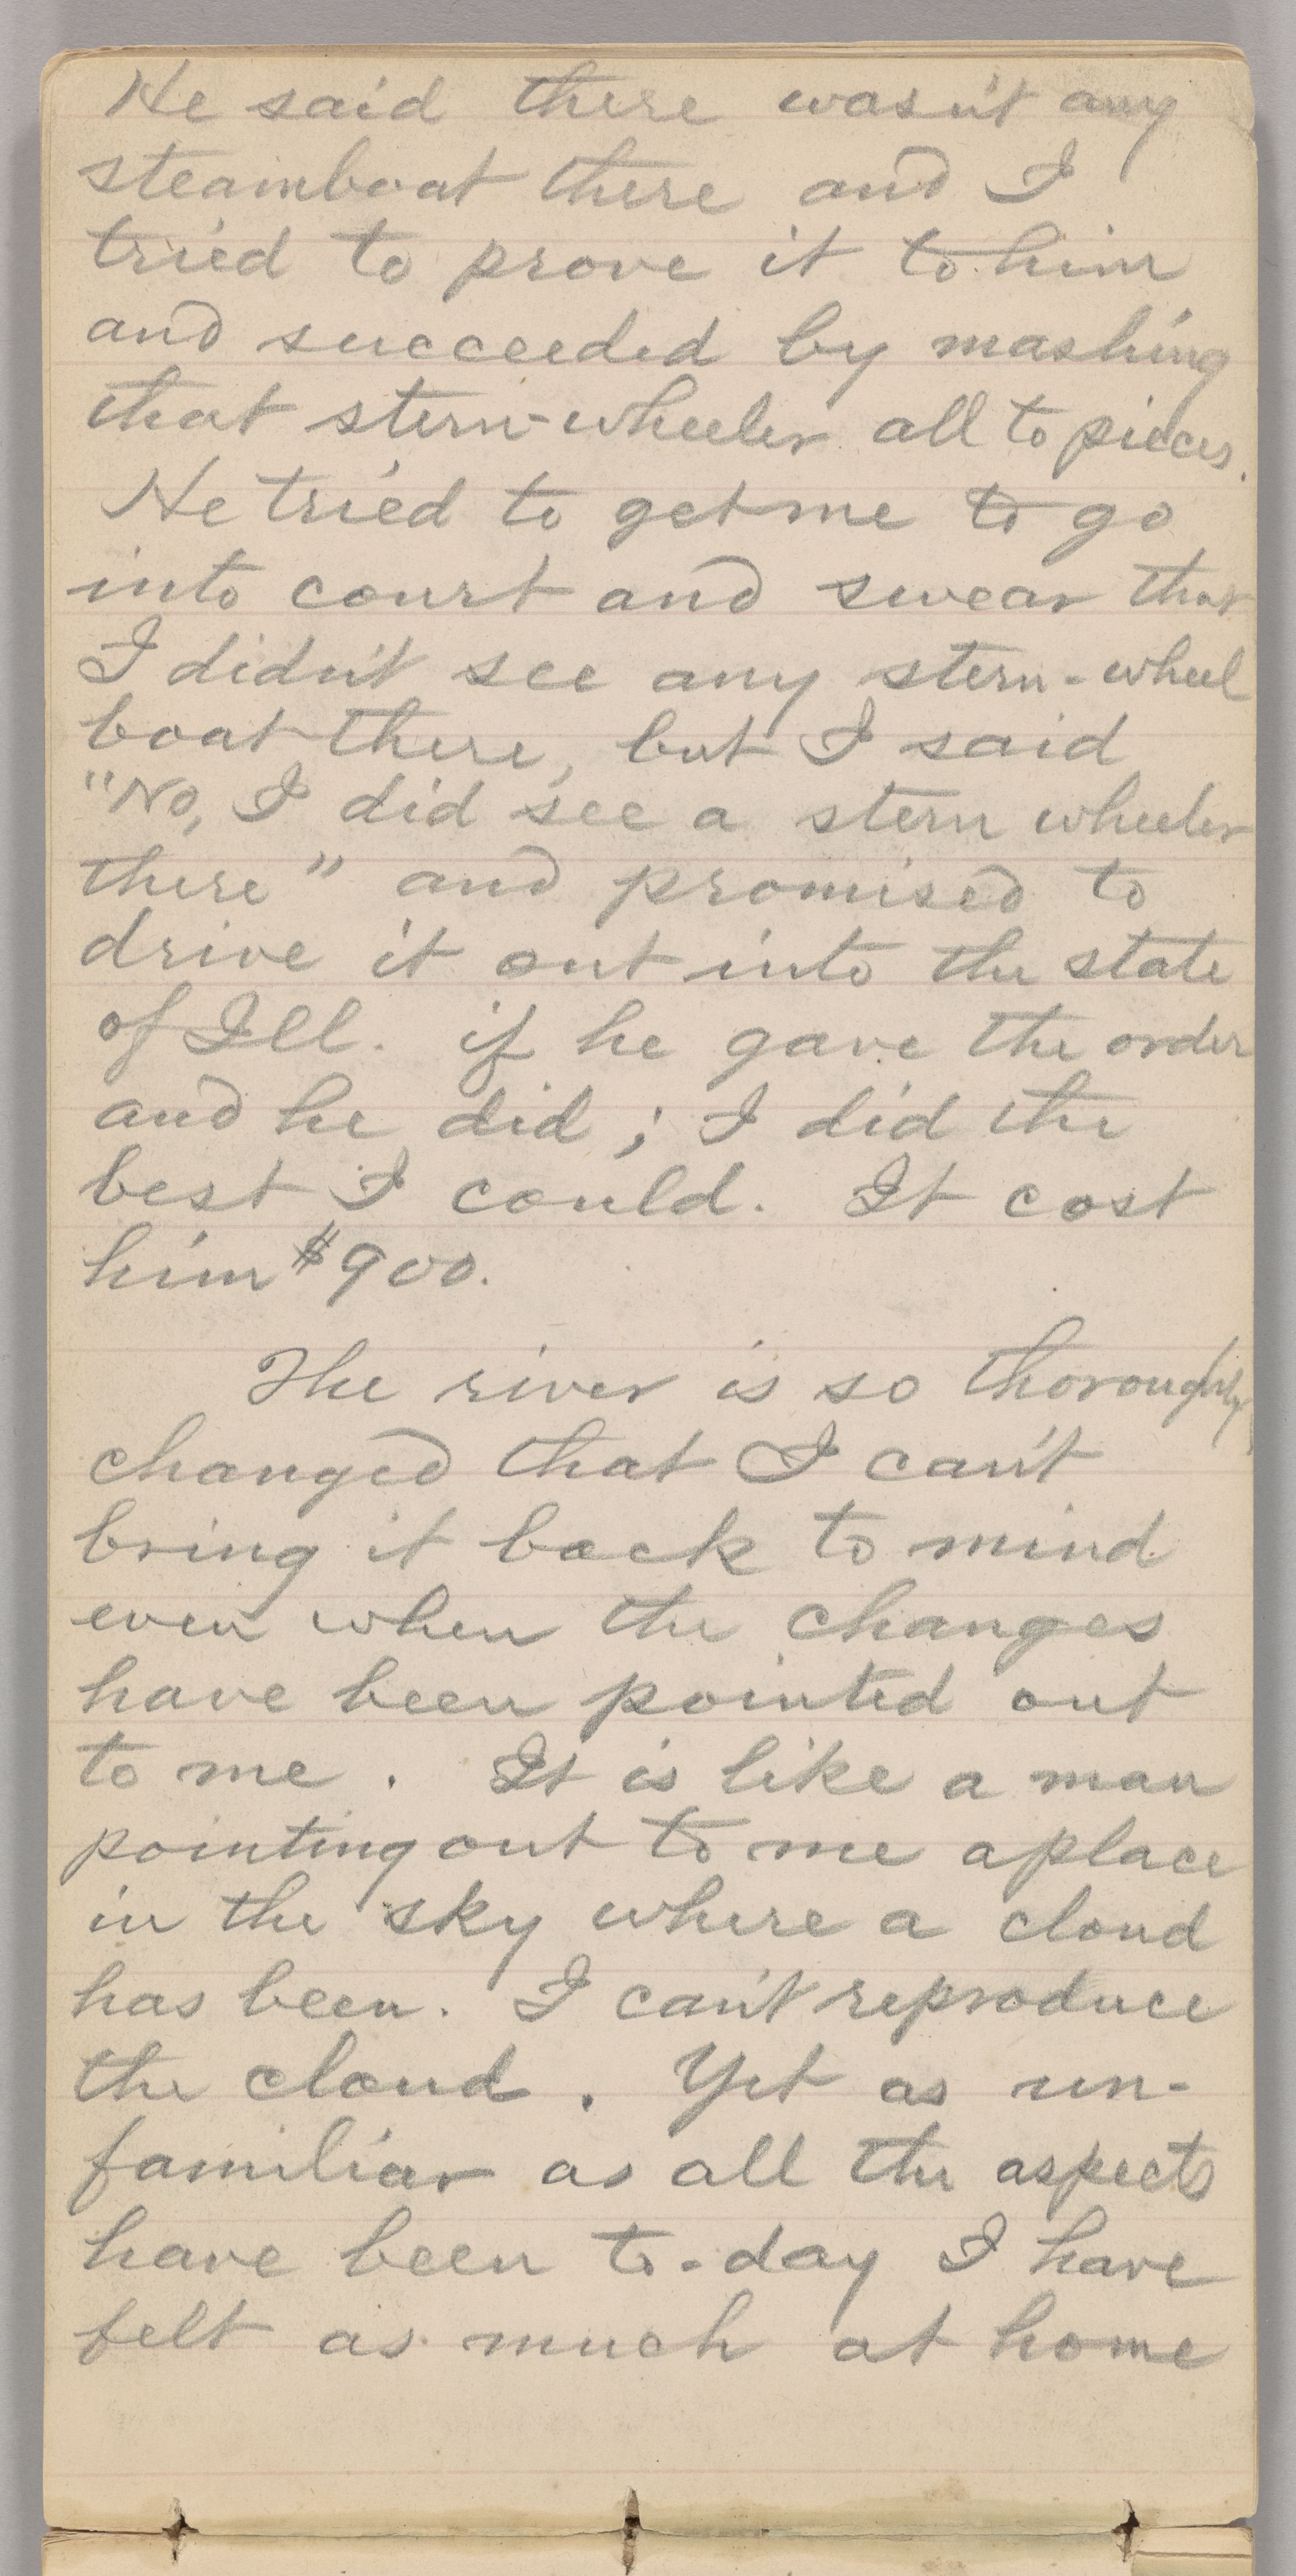 He said there wasn't any
steamboat there and I
tried to prove it to him
and succeeded by mashing
that stern-wheeler all to pieces.
He tried to get me to go
into court and swear that
I didn't see any stern-wheel
boat there, but I said
"No, I did see a stern wheeler
there" and promised to
drive it out into the state
of Ill. if he gave the order
and he did; I did the
best I could. It cost
him $900.
The river is so thoroughly
changed that I can't
bring it back to mind
even when the changes
have been pointed out
to me. It is like a man
pointing out to me a place
in the sky where a cloud
has been. I can't reproduce
the cloud. Yet as un-
familiar as all the aspects
have been to-day I have
felt as much at home